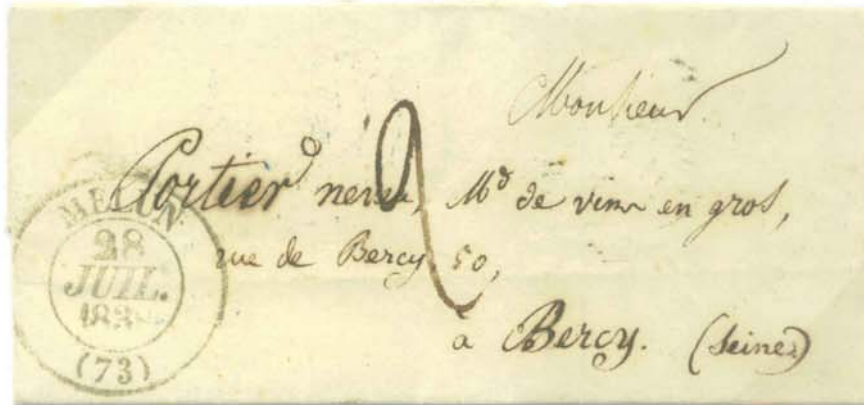 Monsieur
Portier neveu, Md de vins en gros,
rue de Bercy 50,
à Bercy. (Seine)
2
MELUN
28
JUIL.
(73)